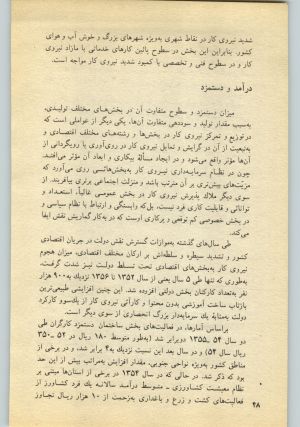 شدید نیروی کار در نقاط شهری به‌ویژه شهرهای بزرگ و خوش آب و هوای
کشور. بنابراین این بخش در سطوح پائین کارهای خدماتی با مازاد نیروی
کار و در سطوح فنی و تخصصی با کمبود شدید نیروی کار مواجه است.
درآمد و دستمزد
میزان دستمزد و سطوح متفاوت آن‌ها در بخش‌های مختلف تولیدی،
به‌سبب مقدار تولید و سوددهی متفاوت آن‌ها، یکی دیگر از عواملی است که
در توزیع و تمرکز نیروی کار در بخش‌ها و رشته‌های مختلف اقتصادی و
به‌تبعیت از آن در گرایش و تمایل نیروی کار در روی‌آوری یا رویگردانی از
آن‌ها مؤثر واقع می‌شود و در ایجاد مسألهٔ بیکاری و ابعاد آن مؤثر می‌افتد.
چون در نظام سرمایه‌داری نیروی کار به‌بخش‌هائی روی می‌آورد که
مزیّت‌های بیش‌تری بر آن مترتب باشد و منزلت اجتماعی برتری بیافریند. از
سوی دیگر ملاک پذیرش نیروی کار در بخش عمومی غالباً، استعداد و
توانائی و قابلیت کاری فرد نیست، بل‌که وابستگی و ارتباط با نظام سیاسی و
در بخش خصوصی کم توقعی و پرکاری اوست که در به‌کار گماریش نقش ایفا
می‌کند.
طی سال‌های گذشته به‌موازات گسترش نقش دولت در جریان اقتصادی
کشور و تشدید سیطره و سلطه‌اش بر ارکان مختلف اقتصادی، میزان هجوم
نیروی کار به‌بخش‌های اقتصادی تحت تسلط دولت نیز شدت گرفت.
به‌طوری که تنها طی ۵ سال یعنی از سال ۱۳۵۲ تا ۱۳۵۶ نزدیک به‌۹۰۰ هزار
نفر به‌تعداد کارکنان بخش دولتی افزوده شد. این چنین افزایشی طبیعی‌ترین
بازتاب ساخت آموزشی بدون محتوا و کارآئی نیروی کار از یک‌سو و کارکرد
دولت به‌مثابه یک سرمایه‌دار بزرگ انحصاری از سوی دیگر است.
براساس آمارها، در فعالیت‌های بخش ساختمان دستمزد کارگران طی
دو سال ۵۴ـ۱۳۵۵ دوبرابر شد (به‌طور متوسط ۱۸۰ ریال در ۵۲ ـ ۳۵۰
ریال سال ۵۴) و در سال بعد این نسبت نزدیک به‌۴ برابر شد، و در برخی از
مناطق کشور به‌ویژه نواحی جنوبی، مقدار افزایش به‌مراتب بیش از این حد
بود که ذکر شد. در حالی که در سال ۱۳۵۴ در برخی از استان‌ها مبتنی بر
نظام معیشت کشاورزی ـ متوسط درآمد سالانه یک فرد کشاورز از
فعالیت‌های کشت و زرع و باغداری به‌زحمت از ۱۰ هزار ریال تجاوز
۴۸